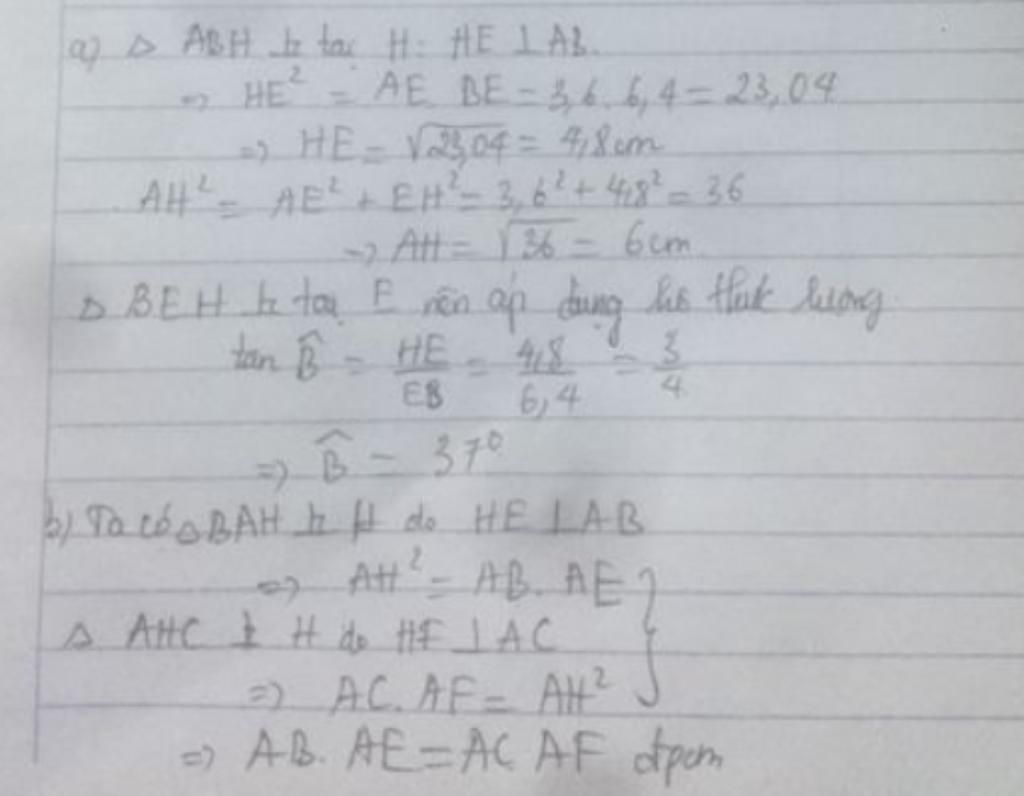 a) Δ ABH ⊥ tại H: HE ⊥ AB.
=> HE² = AE. BE = 3,6. 6,4 = 23,04
=> HE = √23,04 = 4,8cm
AH² = AE² + EH² = 3,6² + 4,8² = 36
=> AH = √36 = 6cm
Δ BEH ⊥ tại E nên áp dụng hệ thức lượng.
tan B̂ = HE/EB = 4,8/6,4 = 3/4
=> B̂ = 37°
b) Ta có Δ BAH ⊥ H do HE ⊥ AB
=> AH² = AB. AE }
Δ AHC ⊥ H do HF ⊥ AC
=> AC. AF = AH²
=> AB. AE = AC. AF đpcm